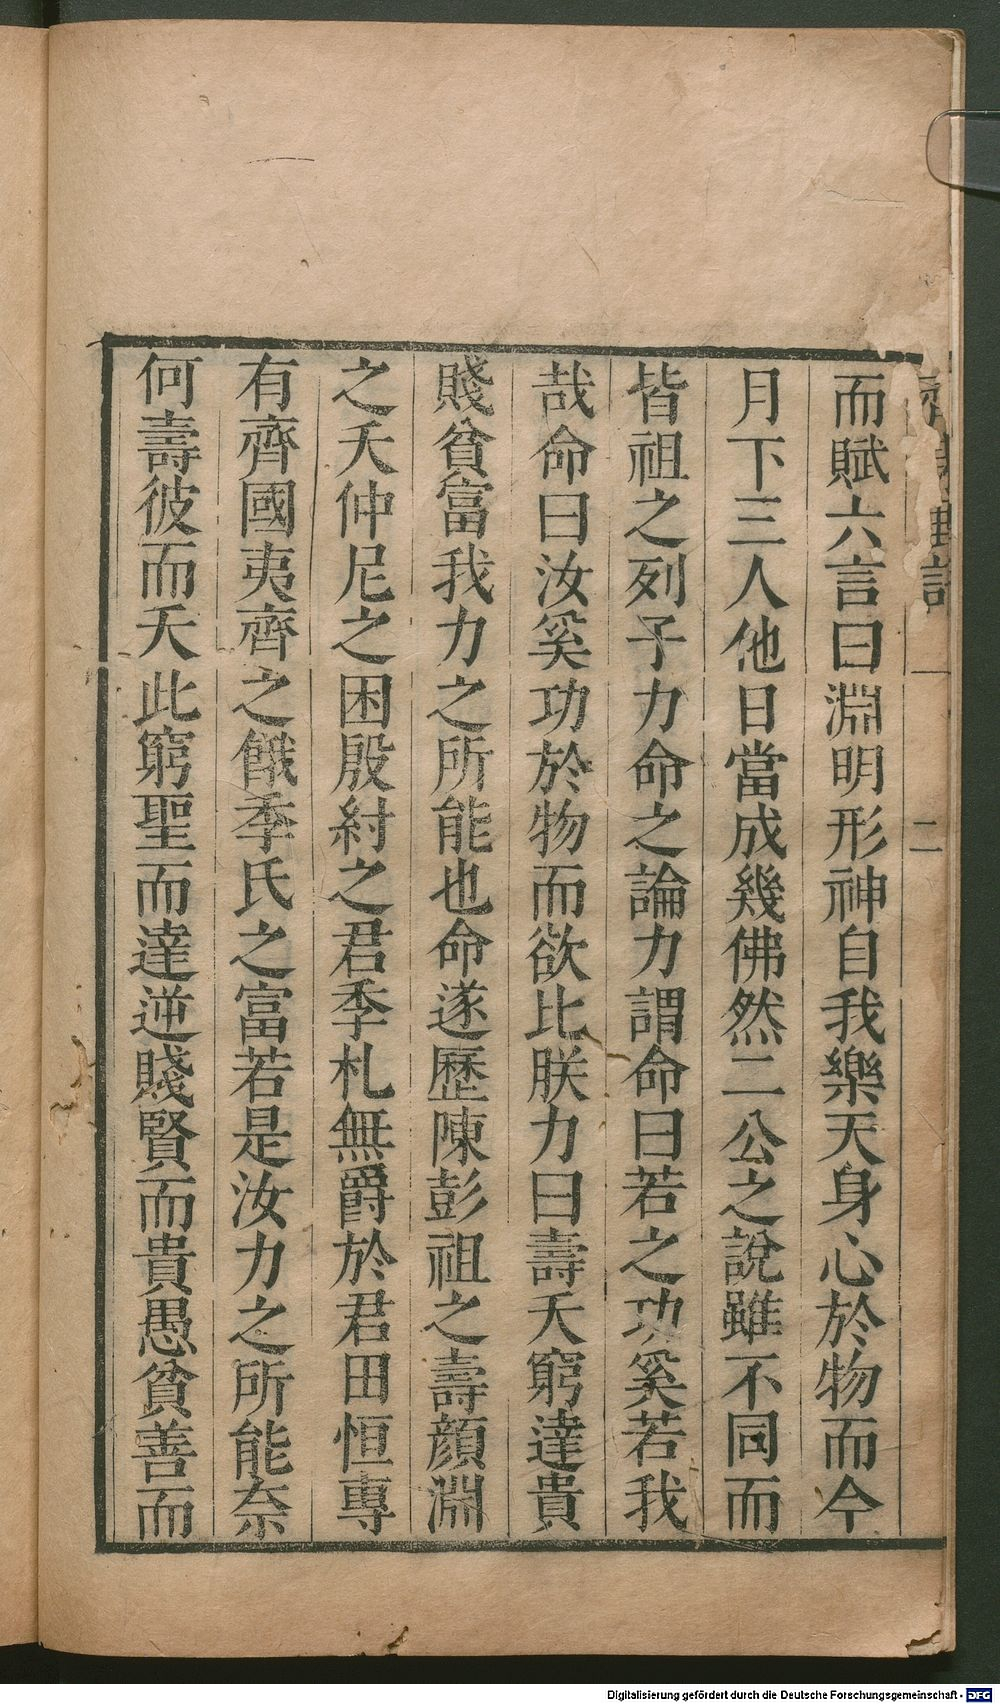 二
而賦六言曰淵明形神自我樂天身心於物而今
月下三人他日當成幾佛然二公之說雖不同而
皆祖之列子力命之論力謂命曰若之功奚若我
哉命曰汝奚功於物而欲比朕力曰壽夭窮達貴
賤貧富我力之所能也命遂歷陳彭祖之壽顏淵
之夭仲尼之困殷紂之君季札無爵於君田恒專
有齊國夷齊之餓季氏之富若是汝力之所能奈
何壽彼而夭此窮聖而達逆賤賢而貴愚貧善而
Digitalisierung gefördert durch die Deutsche Forschungsgemeinschaft - DFG